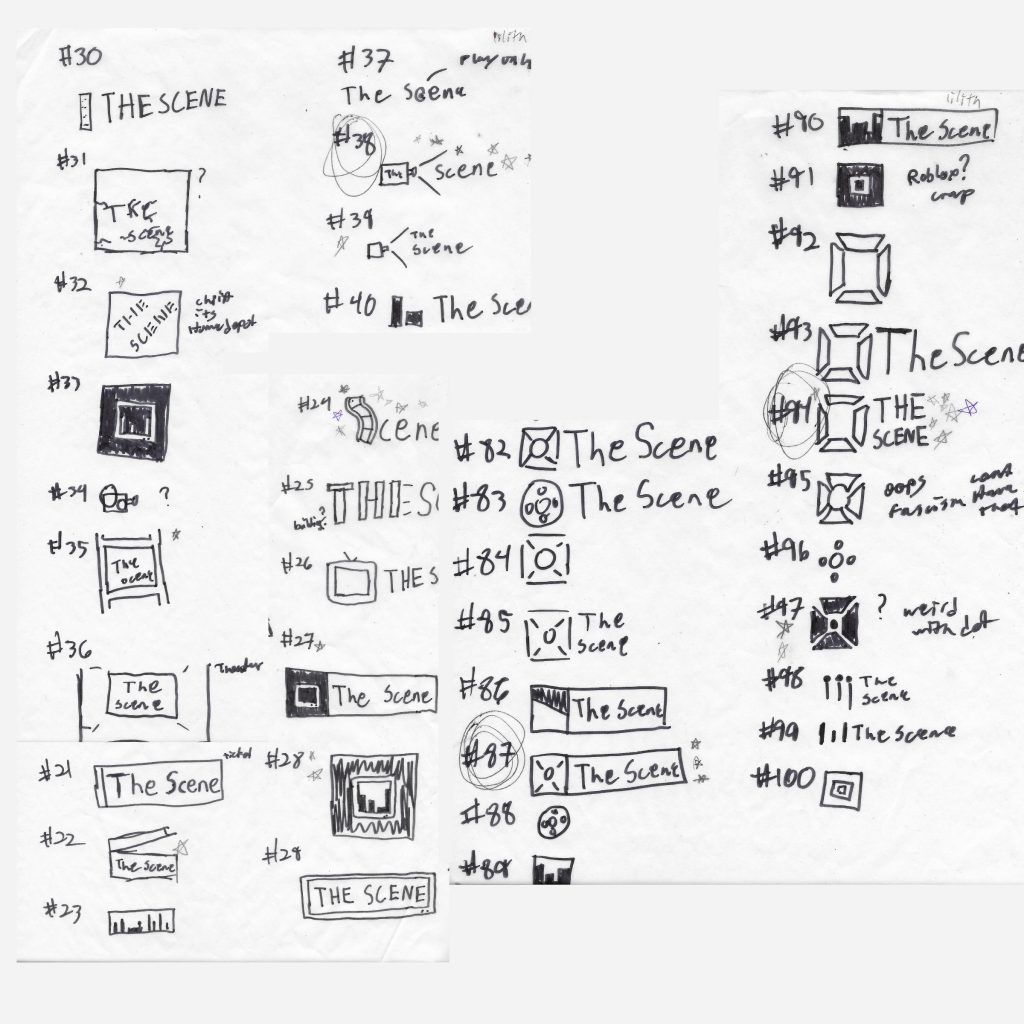 #30
THE SCENE
#31
?
THE
SCENE
#32
THE
SCENE
christ
its
Home depot
#33
#34
?
#35
The
scene
#36
The
scene
#21
The Scene
#22
The Scene
#23
lilith
#37
The Scene
#38
The
Scene
#39
The
Scene
#40
The Sce
#24
cene
#25
THE SC
?
#26
THE S
#27
The Scene
#28
#29
THE SCENE
#82
The Scene
#83
The Scene
#84
#85
The
Scene
#86
The Scene
#87
The Scene
#88
#89
lilith
#90
The Scene
#91
Roblox?
crap
#92
#93
The Scene
#94
THE
SCENE
#95
oops
fascism
cant
have
that
#96
#97
?
weird
with dot
#98
The
Scene
#99
The Scene
#100